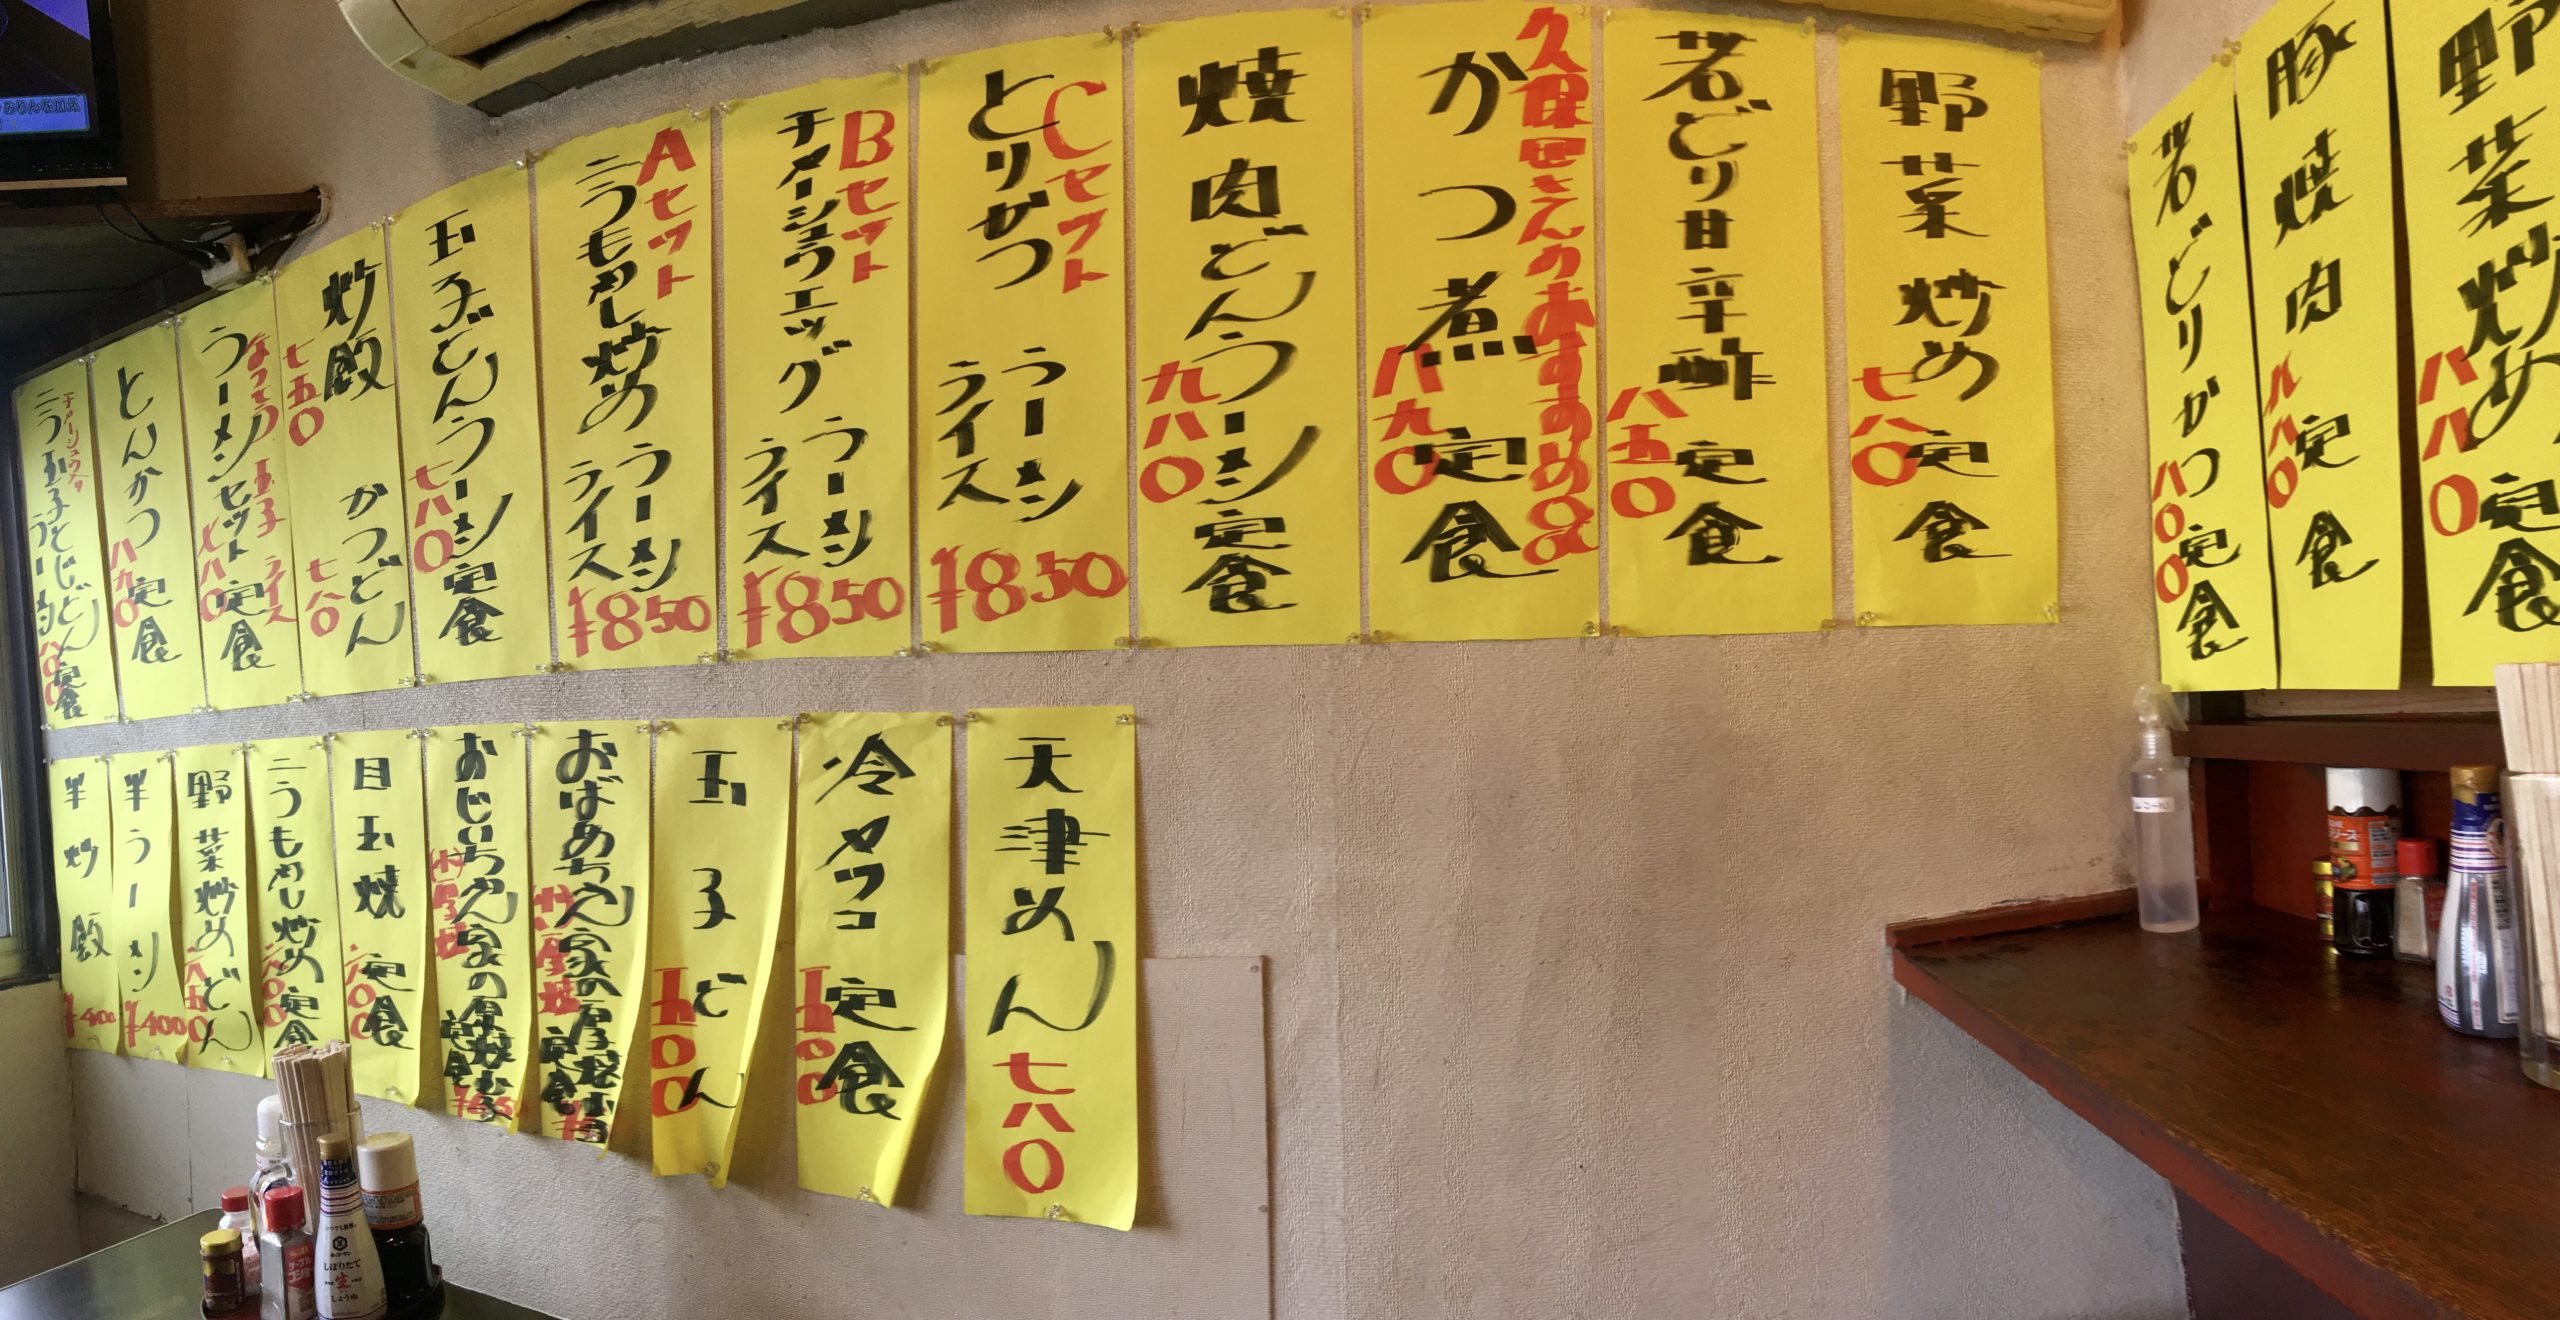 野菜炒め定食
七八〇
若どり甘辛酢定食
八五〇
久保田さんのおすすめ
かつ煮定食
八九〇
焼肉どんラーメン定食
九八〇
Cセット
とりかつ
ラーメン
ライス
¥850
Bセット
チャーシュウエッグ
ラーメン
ライス
¥850
Aセット
ニラもやし炒め
ラーメン
ライス
¥850
玉子どんラーメン定食
七八〇
炒飯
七五〇
かつどん
七八〇
なっとう 玉子 ライス
ラーメンセット定食
とんかつ定食
八九〇
チャーシュウ入り
ニラ玉子とじどん定食
ラーメン
天津めん
七八〇
冷ヤッコ定食
五〇〇
玉子どん
五〇〇
おばあちゃん家の厚揚
定食
おじいちゃん家の厚揚
定食
目玉焼定食
六〇〇
ニラもやし炒め定食
六〇〇
野菜炒めどん
六五〇
半ラーメン
¥400
半炒飯
¥400
野菜炒め定食
八八〇
豚焼肉定食
八八〇
若どりかつ定食
八〇〇
しぼりたて
生
しょうゆ